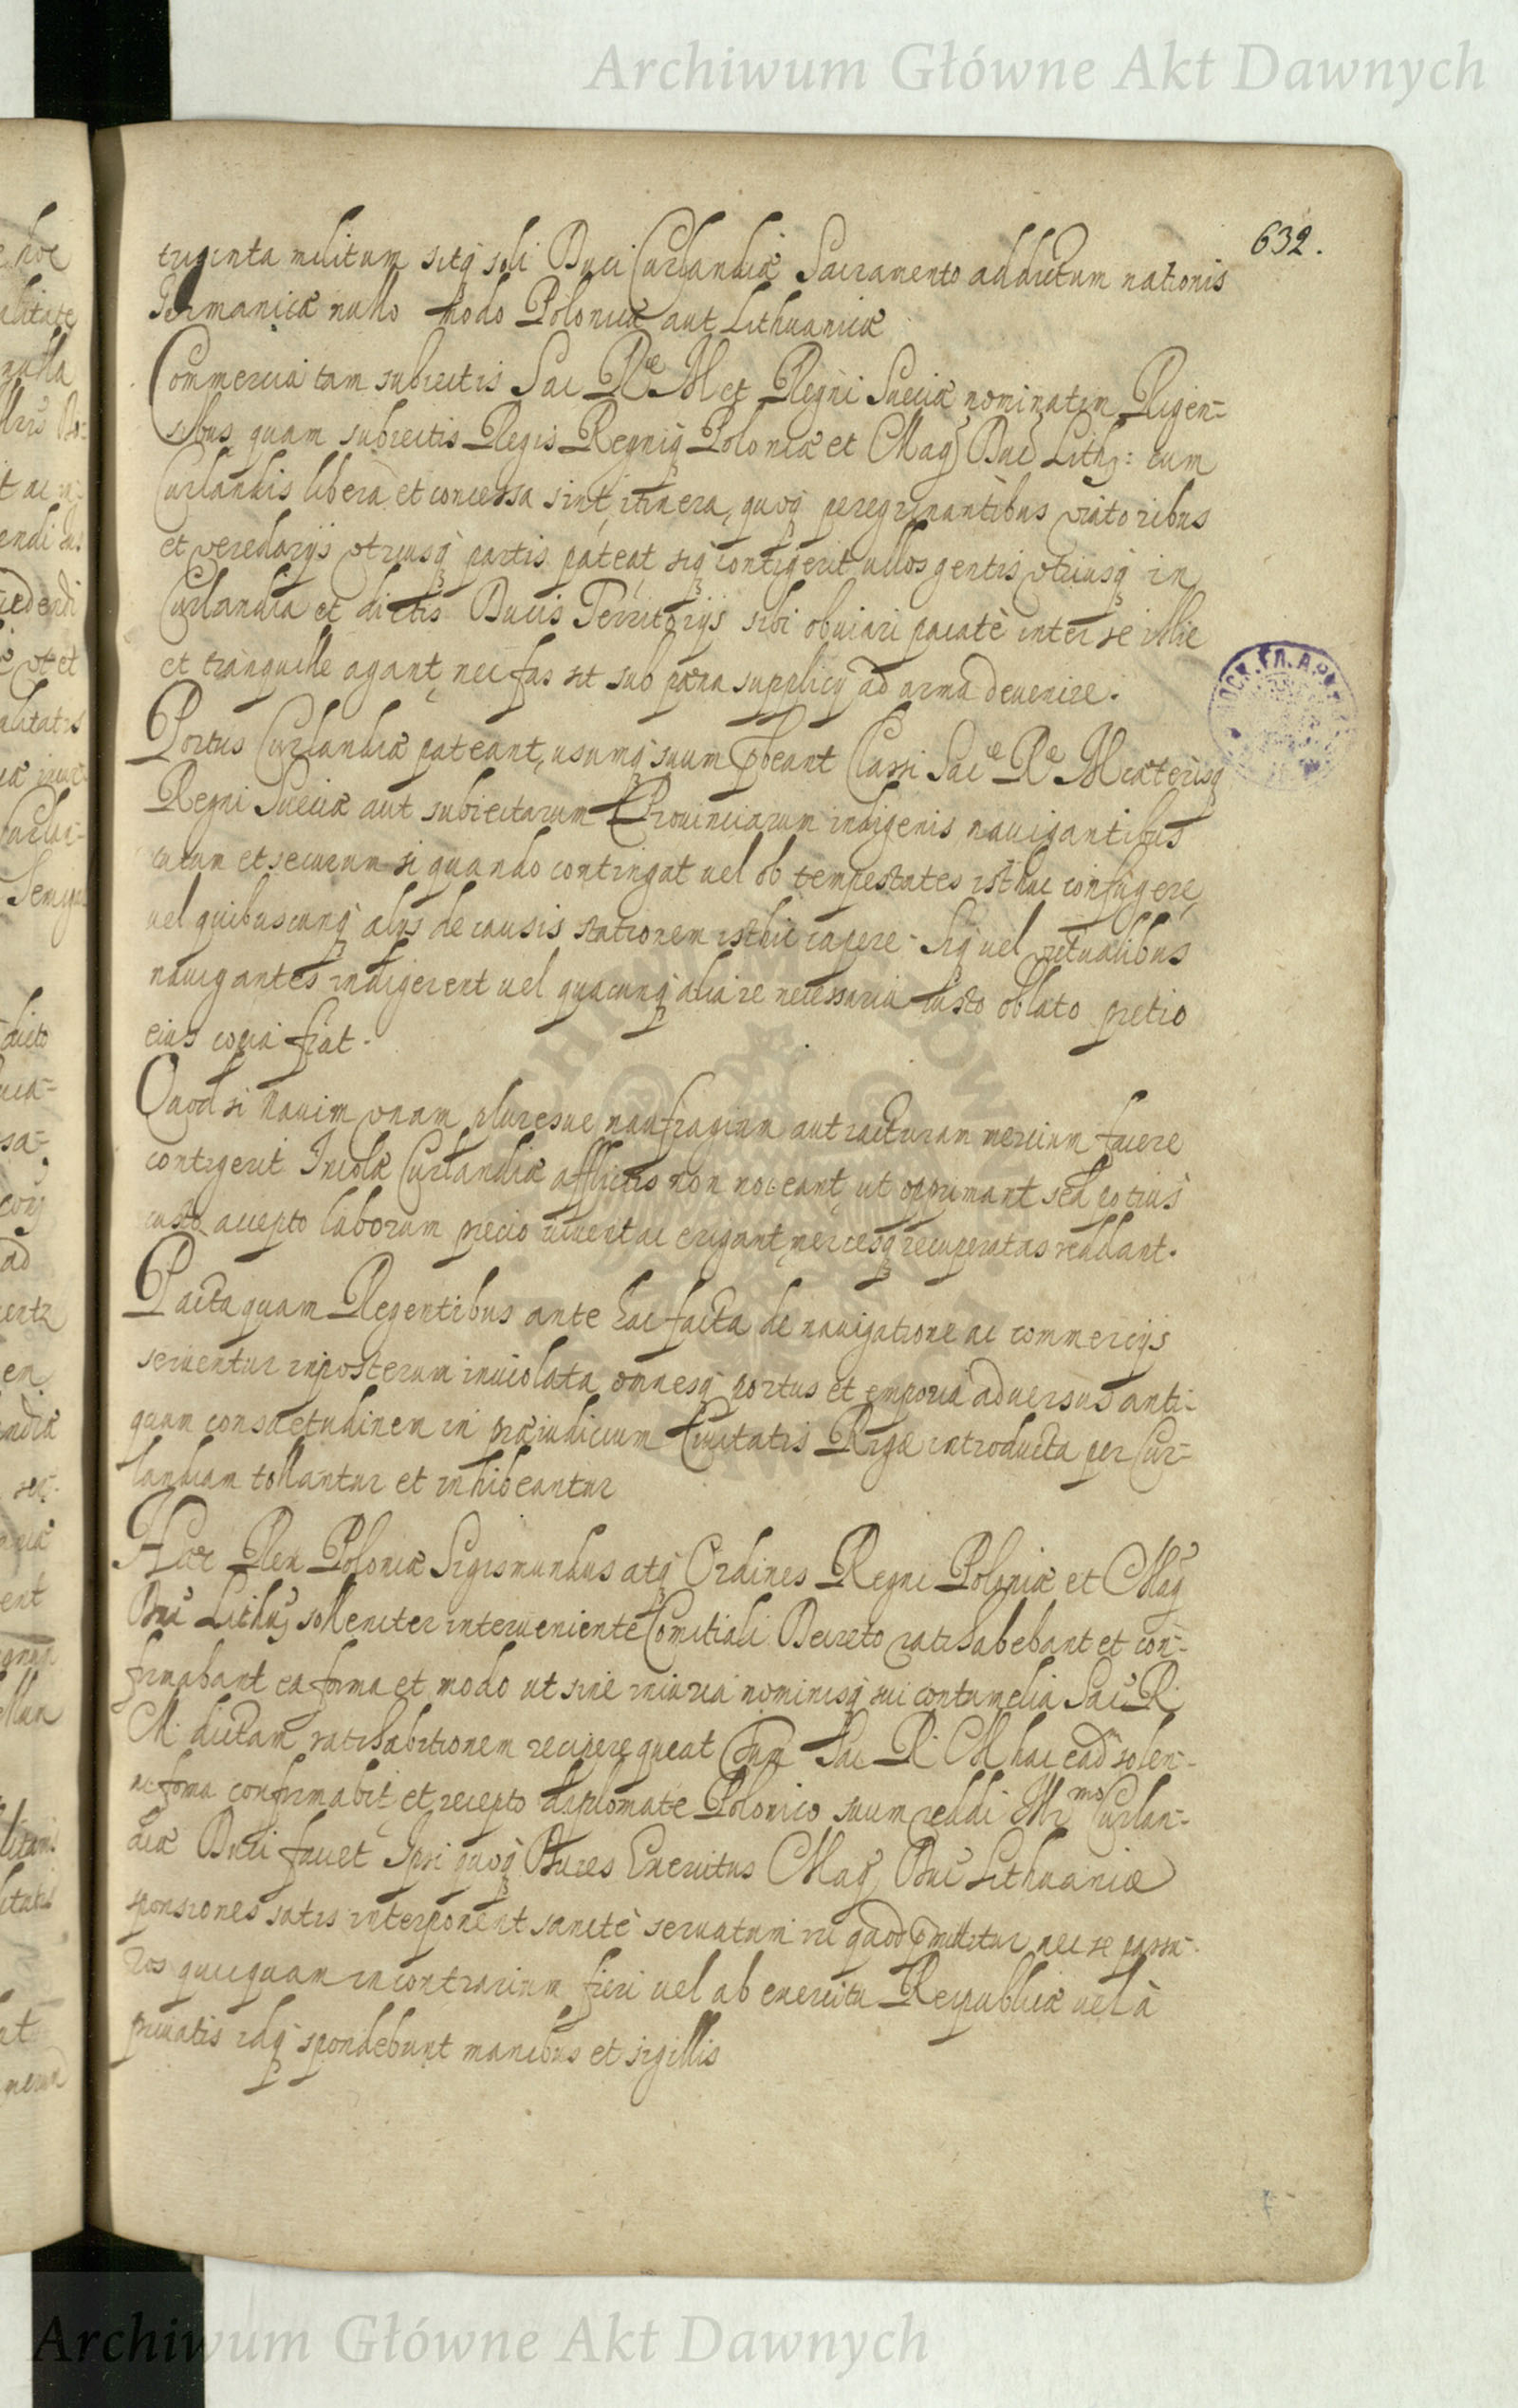 Archiwum Główne Akt Dawnych
632.
triginta militum sitq̃ soli Duci Curlandiæ Sacramento addictum nationis
Germanicæ nullo modo Polonicæ aut Lithuanicæ
Commercia tam subiectis Sac Ræ M et Regni Sueciæ nominatim Rigen=
sibus quam subiectis Regis Regniq̃ Poloniæ et Mag Duc Lith: cum
Curlandis libera et concessa sint, itinera quoq̃ peregrinantibus viatoribus
et veredarijs vtriusq̃ partis pateat, siq̃ contigerit ullos gentis vtriusq̃ in
Curlandia et dictis Ducis Territorijs sibi obuiari pacatè inter se illic
et tranquille agant, nec fas sit sub pæna supplicij ad arma deuenire.
Portus Curlandiæ pateant, usumq̃ suum præbeant Classi Sacᵉ Rᵉ M cæterisq̃
Regni Sueciæ aut subiectarum Prouinciarum indigenis nauigantibus
tutum et securum si quando contingat uel ob tempestates isthuc confugere
uel quibuscunq̃ alijs de causis stationem isthic capere. Siq̃ uel victualibus
nauigantes indigerent uel quacunq̃ alia re necessaria iusto oblato pretio
eius copia fiat.
Quod si Nauim vnam pluresue naufragium aut iacturam mercium facere
contigerit Incolæ Curlandiæ afflictis non noceant, ut opprimant sed potius
iusto accepto laborum precio iuuent ac erigant, mercesq̃ recuperatas reddant.
Pacta quam Regentibus ante hac facta de nauigatione ac commercijs
seruentur inposterum inuiolata omnesq̃ portus et emporia aduersus anti=
quam consuetudinem in præiudicium Ciuitatis Rigæ introducta per Cur=
landiam tollantur et inhibeantur
Hæc Rex Poloniæ Sigismundus atq̃ Ordines Regni Poloniæ et Mag
Duc Lithu solleniter interueniente Comitiali Decreto ratihabebant et con=
firmabant ea forma et modo ut sine iniuria nominisq̃ sui contumelia Sac R.
M. dictam ratihabitionem recipere queat Sac R. M hac ead solen=
ni forma confirmabit, et recepto diplomate Polonico suum reddi Illᵐᵒ Curlan=
diæ Duci faciet Ipsi quoq̃ Duces Exercitus Mag Duc Lithuaniæ
sponsiones satis interponent sanctè seruatum iri quod promittitur nec se passu=
ros quicquam in contrarium fieri uel ab exercitu Reipublicæ uel à
priuatis idq̃ spondebunt manibus et sigillis
Archiwum Główne Akt Dawnych